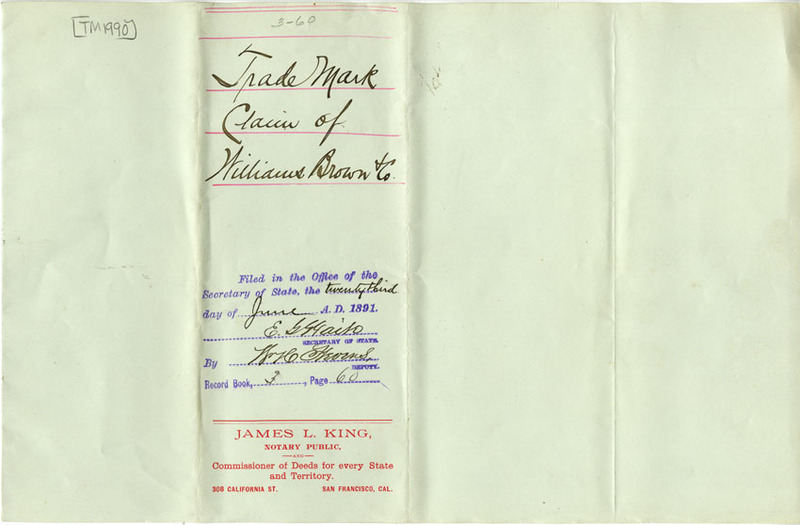 [TM1990]
3-60
Trade Mark
Claim of
Williams Brown & Co.
Filed in the Office of the
Secretary of State, the twenty third
day of June A. D. 1891.
E. G. Waite
SECRETARY OF STATE.
By
DEPUTY.
Record Book, 3, Page 60
JAMES L. KING,
NOTARY PUBLIC,
—AND—
Commissioner of Deeds for every State
and Territory.
308 CALIFORNIA ST. SAN FRANCISCO, CAL.